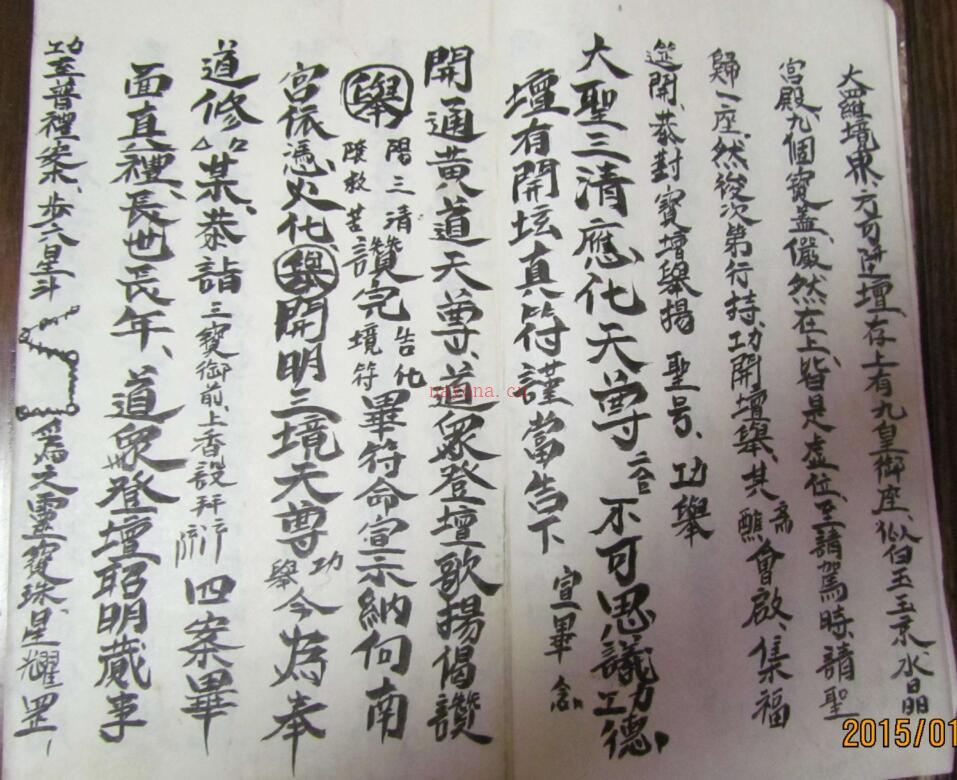 大羅境界、六方陞壇、存上有九皇御座、似白玉玉京、水晶
宮殿、九個寶蓋、儼然在上、皆是虛位、至請駕時、請聖
歸一座、然後次第行持、功開壇舉、其齋醮會啟、集福
筵開、恭對寶壇舉揚 聖号、功舉
大聖三清應化天尊 二合 不可思議功德、
壇有開坛真符謹當告下 宣畢 念
開通黄道天尊、道眾登壇歌揚偈讚
舉 陽三清 陰救苦 讚完 告化境符 畢符命宣示納向南
宮依憑火化 舉開明三境天尊 功舉 今為奉
道修 某、恭詣 三寶御前、上香設拜行 四案畢
面真禮、長世長年、道眾登壇昭明蕆事
功至普禮案、步六星斗 為文靈寶珠、星耀罡
nayona.cn
2015/01